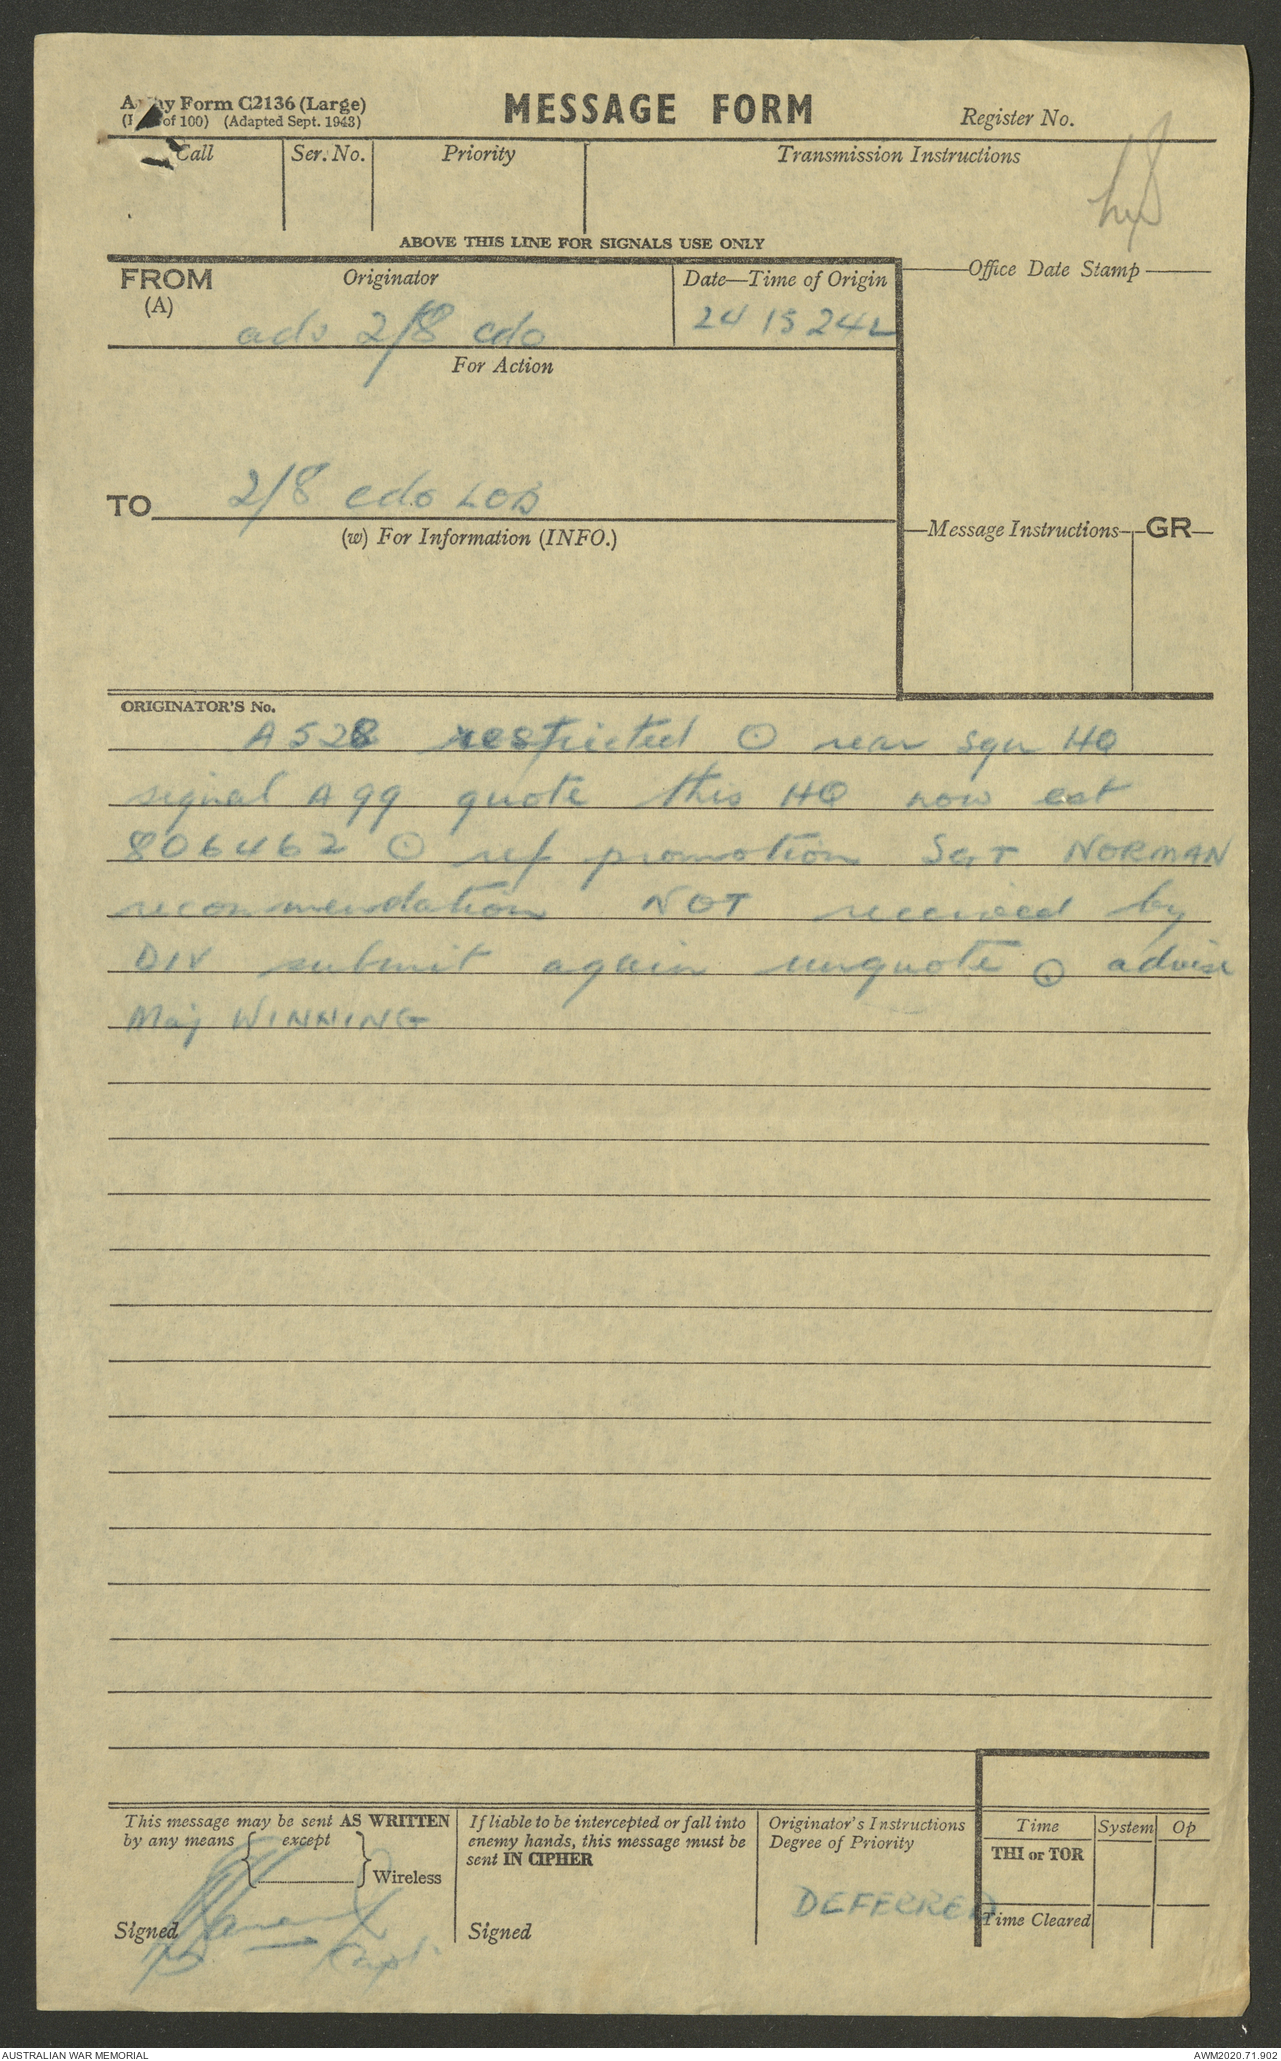 Army Form C2136 (Large)
of 100) (Adapted Sept. 1943)
MESSAGE FORM
Register No.
Call
Ser. No.
Priority
Transmission Instructions
ABOVE THIS LINE FOR SIGNALS USE ONLY
FROM
(A)
Originator
Date—Time of Origin
Office Date Stamp
adv 2/8 cdo
24 1524L
For Action
TO
2/8 cdo LOB
(w) For Information (INFO.)
Message Instructions
GR
ORIGINATOR'S No.
A528 restricted ⊙ rear sqn HQ
signal A99 quote this HQ now est
806462 ⊙ ref promotion SGT NORMAN
recommendation NOT received by
DIV submit again unquote ⊙ advise
Maj WINNING
This message may be sent AS WRITTEN
by any means except
Wireless
Signed
Capt.
If liable to be intercepted or fall into
enemy hands, this message must be
sent IN CIPHER
Signed
Originator's Instructions
Degree of Priority
DEFERRED
Time
System
Op
THI or TOR
Time Cleared
AUSTRALIAN WAR MEMORIAL
AWM2020.71.902